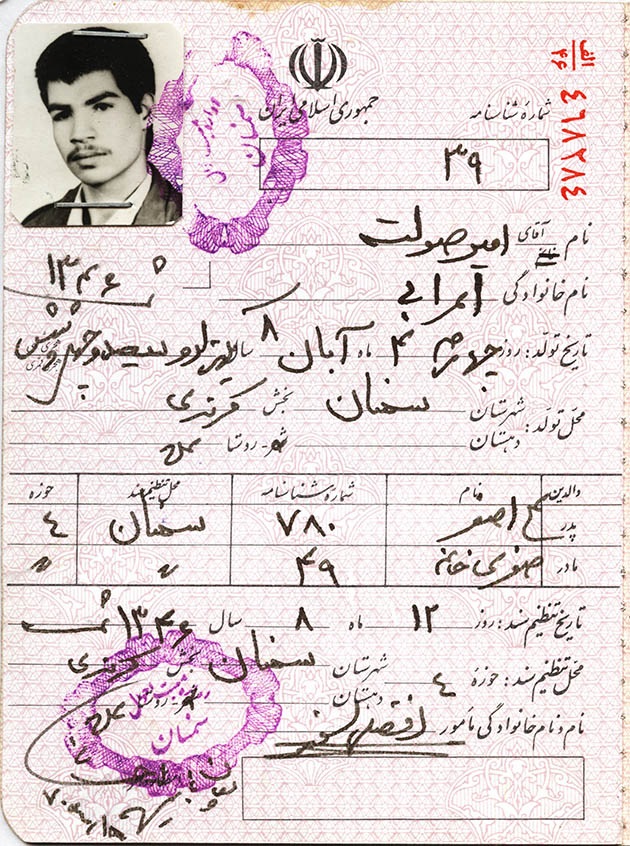 الف
۴۶
٤٦٨٢٨٤
جمهوری اسلامی ایران
شمارهٔ شناسنامه
۳۹
نام آقای امیر صولت
نام خانوادگی اعرابی
۱۳۴۶
تاریخ تولد: روز چهارم ۴ ماه آبان ۸ سال یکهزار و سیصد و چهل و شش
محل تولد: شهرستان سمنان بخش مرکزی
دهستان شهر - روستا
والدین نام شماره شناسنامه محل تنظیم سند حوزه
پدر اصغر ۷۸۰ سمنان ٤
مادر صغری خانم ۴۹ " "
تاریخ تنظیم سند: روز ۱۲ ماه ۸ سال ۱۳۴۶
محل تنظیم سند: حوزه ٤ شهرستان سمنان بخش مرکزی
دهستان شهر - روستا
نام و نام خانوادگی مأمور
سمنان